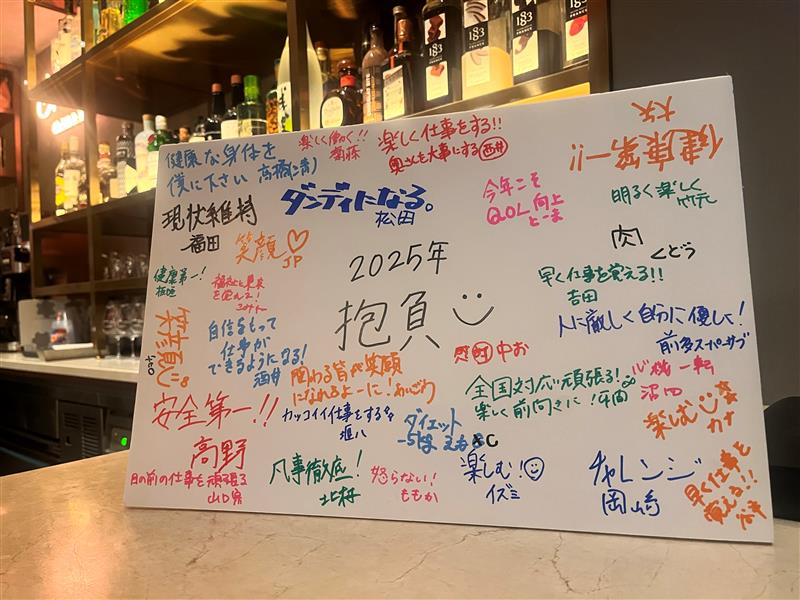 183
183
183
健康な身体を
僕に下さい 高橋(満)
楽しく働く!!
楽しく仕事をする!!
奥さんも大事にする 西井
健康第一!!
現状維持
福田
ダンディになる。
松田
今年こそ
QOL向上
とーま
明るく楽しく
竹元
笑顔♡
JP
2025年
抱負
肉
くどう
健康第一!
板垣
早く仕事を覚える!!
吉田
笑顔
自信をもって
仕事が
できるようになる!
酒井
人に厳しく自分に優しく!
前多スーパーサブ
中お
関わる皆が笑顔
になれるよーに!
全国対応頑張る!
楽しく前向きに!
心機一転
沼田
安全第一!!
高野
カッコイイ仕事をする
ダイエット
楽しむ
カナ
目の前の仕事を頑張る
山口
凡事徹底!
北村
怒らない!
ももか
楽しむ!
イズミ
チャレンジ
岡崎
早く仕事を
覚える!!